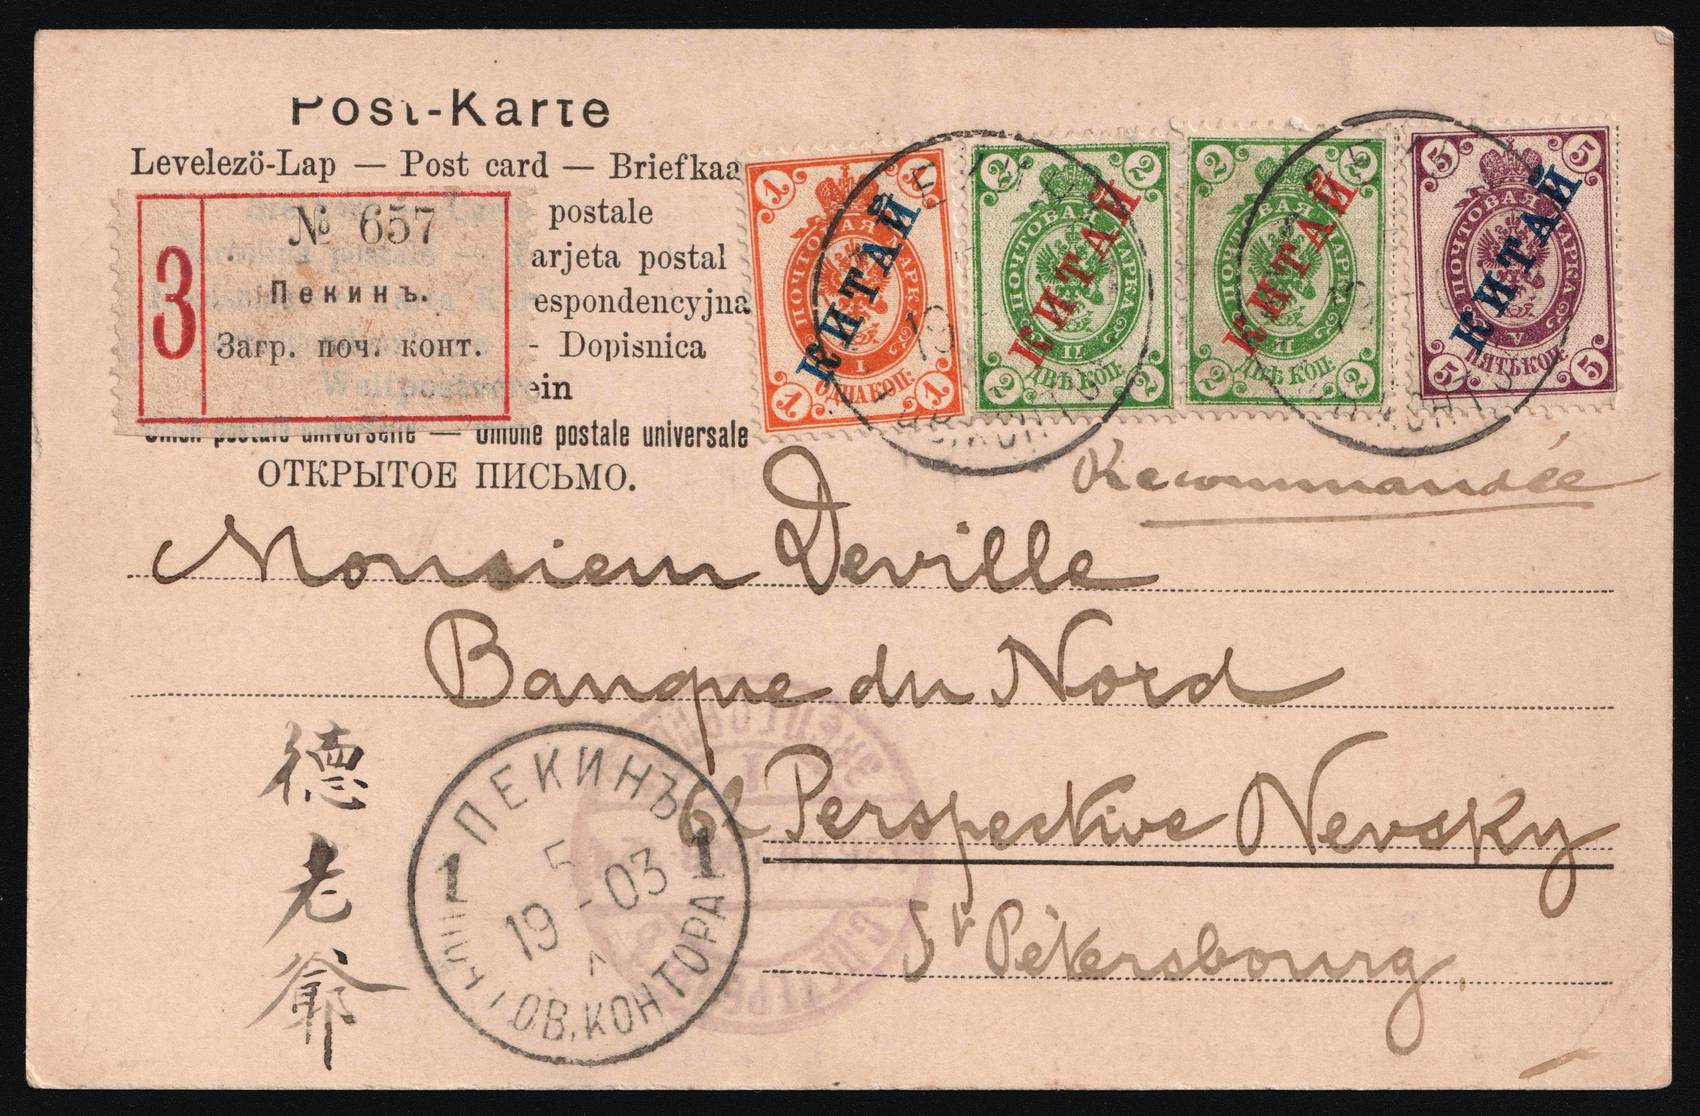 Post-Karte
Levelező-Lap — Post card — Briefkaa
postale
arjeta postal
espondencyjna
- Dopisnica
Weltpostverein
Union postale universelle — Unione postale universale
ОТКРЫТОЕ ПИСЬМО.
№ 657
З
Пекинъ.
Загр. поч. конт.
1 1
ПОЧТОВАЯ МАРКА
ОДНАКОП:
1 1
КИТАЙ
2 2
ПОЧТОВАЯ МАРКА
ДВѢ КОП:
2 2
КИТАЙ
2 2
ПОЧТОВАЯ МАРКА
ДВѢ КОП:
2 2
КИТАЙ
5 5
ПОЧТОВАЯ МАРКА
ПЯТЬ КОП:
5 5
КИТАЙ
Recommandée
Monsieur Deville
Banque du Nord
62 Perspective Nevsky
St Pétersbourg.
德老爺
ПЕКИНЪ
1 1
5
19-03
ПОВ. КОНТОРА